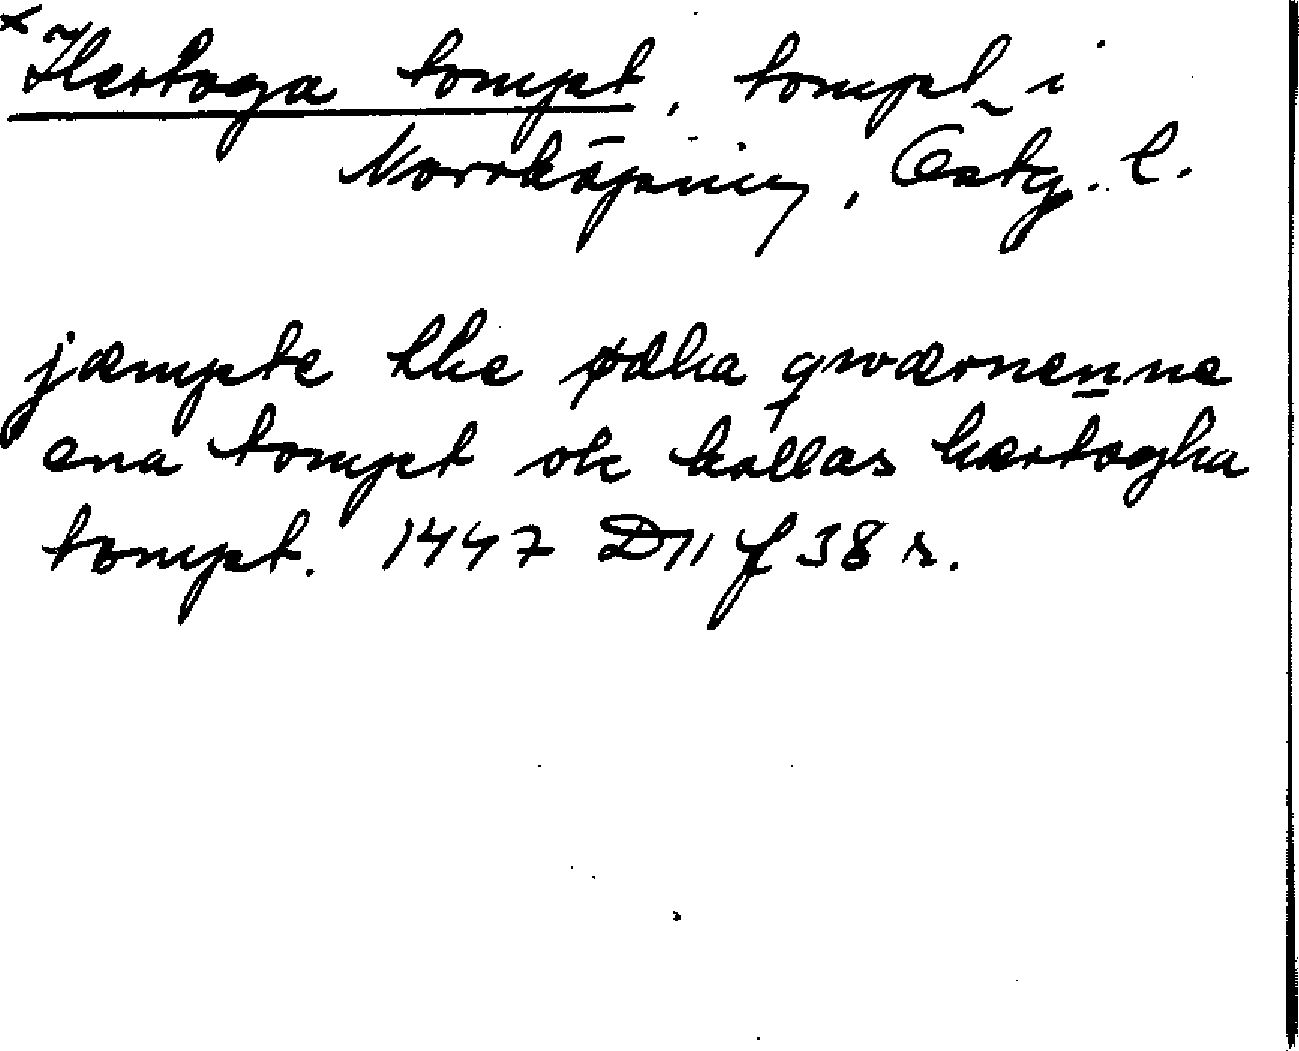 × Hertoga tompt, tompt i
Norrköping, Östg. l.
jæmpte the ødha qwærnenne
ena tompt ok kallas hærtogha
tompt. 1447 D11 f 38 r.